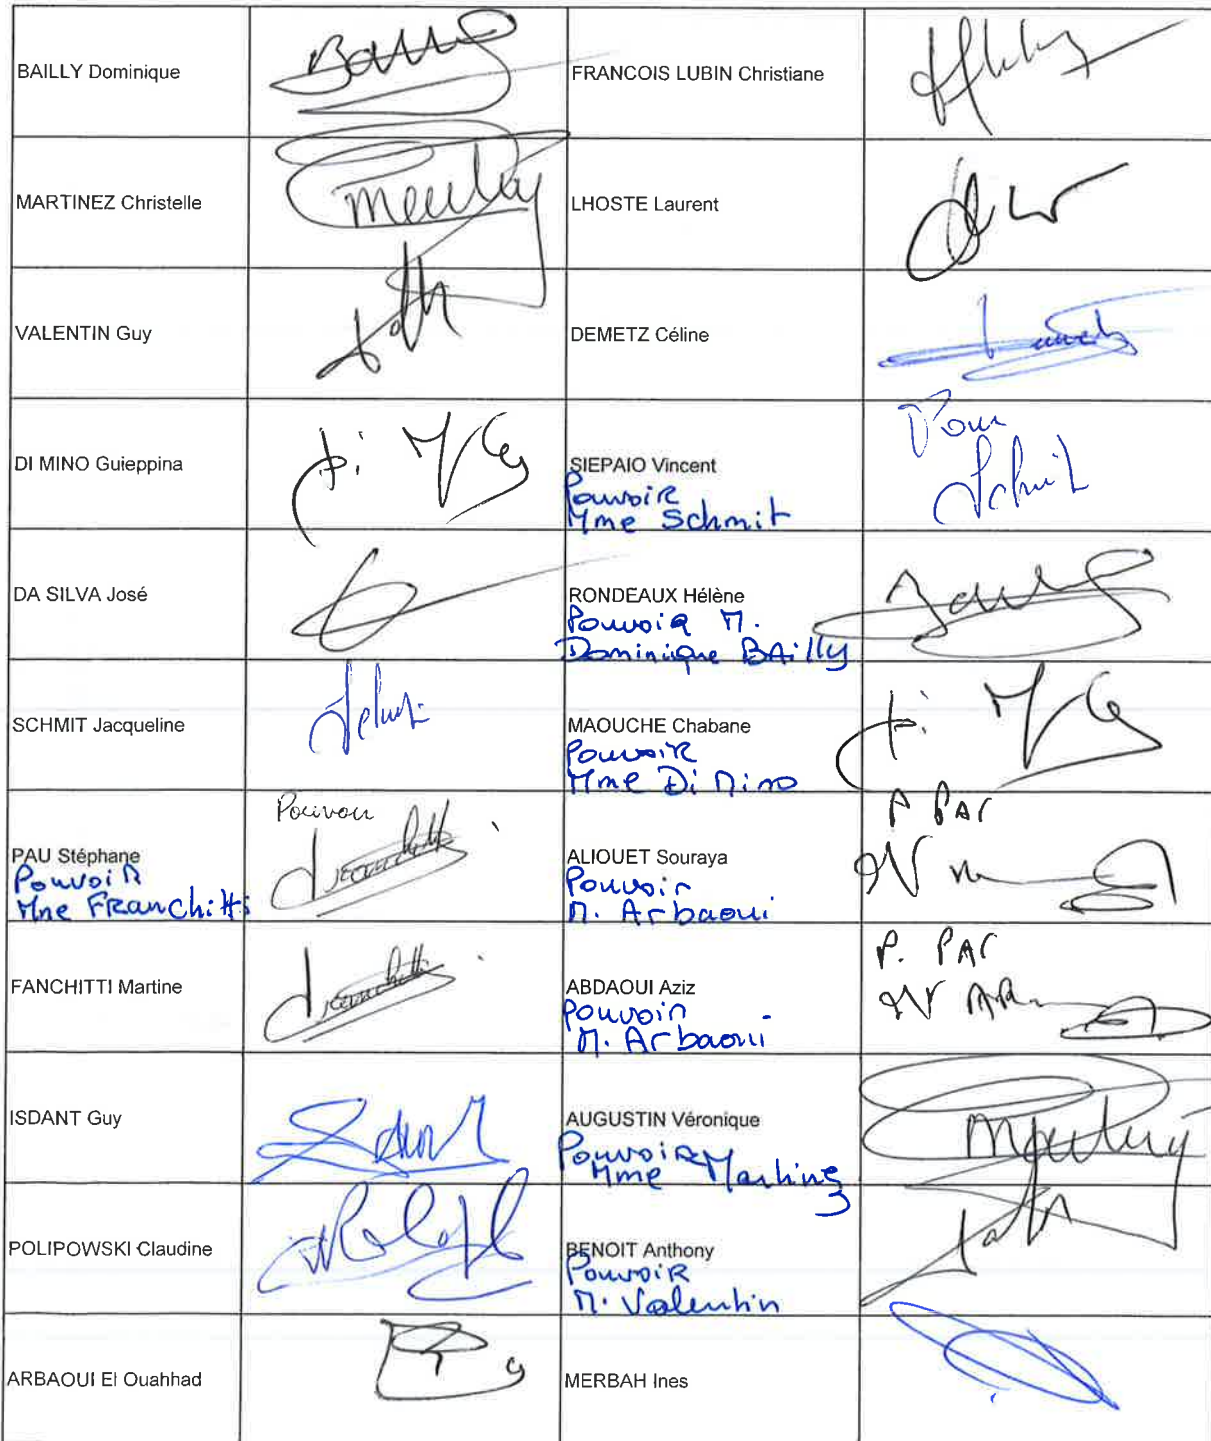 BAILLY Dominique
FRANCOIS LUBIN Christiane
MARTINEZ Christelle
LHOSTE Laurent
VALENTIN Guy
DEMETZ Céline
DI MINO Guieppina
Di M
SIEPAIO Vincent
Pouvoir
Mme Schmit
Pour
Schmit
DA SILVA José
RONDEAUX Hélène
Pouvoir M.
Dominique BAilly
SCHMIT Jacqueline
MAOUCHE Chabane
Pouvoir
Mme Di Mino
PAU Stéphane
Pouvoir
Mne FRanchitti
Pouvoir
ALIOUET Souraya
Pouvoir
M. Arbaoui
P PAr
FANCHITTI Martine
ABDAOUI Aziz
Pouvoir
M. Arbaoui
P. PAr
ISDANT Guy
AUGUSTIN Véronique
Pouvoir
Mme Martinez
POLIPOWSKI Claudine
BENOIT Anthony
Pouvoir
M. Valentin
ARBAOUI El Ouahhad
MERBAH Ines